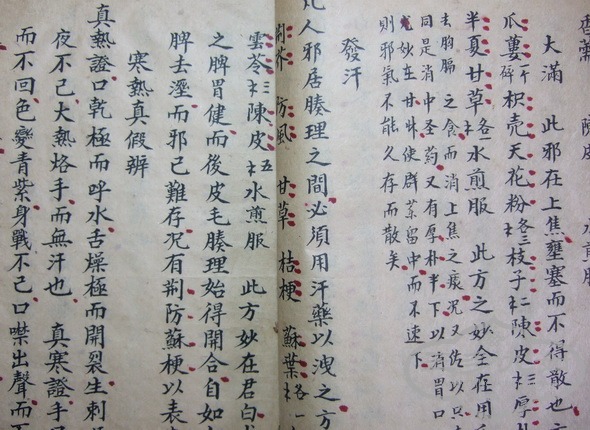 大滿 此邪在上焦壅塞而不得散也
瓜蔞碎 枳壳天花粉各三枝子陳皮厚
半夏甘草各水煎服 此方之妙全在用
去胸膈之食而消上焦之痰況又佐以
同是消中圣药又有厚朴半下以消胃口
妙在甘草使群药留中而不速下
則邪氣不能久存而散矣
發汗
凡人邪居腠理之間必須用汗藥以洩之方
荊芥 防風 甘草 桔梗 蘇葉各一
雲苓陳皮五水煎服 此方妙在君白
之脾胃健而後皮毛腠理始得開合自如
脾去溼而邪已難存况有荊防蘇梗以表
寒熱真假辨
真熱證口乾極而呼水舌燥極而開裂生刺
夜不已大熱烙手而無汗也 真寒證手
而不回色變青紫身戰不已口噤出聲而